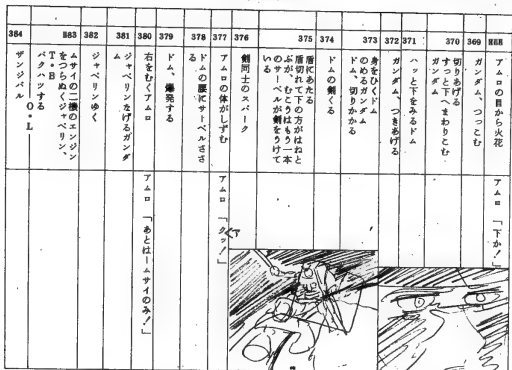 アムロの目から火花
アムロ 「下か！」
369
ガンダム、つっこむ
370
切りあげる
すっと下へまわりこむ
ガンダム
371
ハッと下をみるドム
372
ガンダム、つきあげる
373
身をひくドム
のめるガンダム
ドム、切りかかる
374
ドムの剣くる
375
盾にあたる
盾切れて下の方がはねと
ぶが、むこうはもう一本
のサーベルが剣をうけて
いる
376
剣同士のスパーク
377
アムロの体がしずむ
アムロ 「クッ！」
378
ドムの腰にサーベルささ
る
379
ドム、爆発する
380
右をむくアムロ
アムロ 「あとはームサイのみ！」
381
ジャベリンをげるガンダ
ム
382
ジャベリンゆく
383
ムサイの二機のエンジン
をつらぬくジャベリン、
T・B
バクハツする
O・L
384
ザンジバル